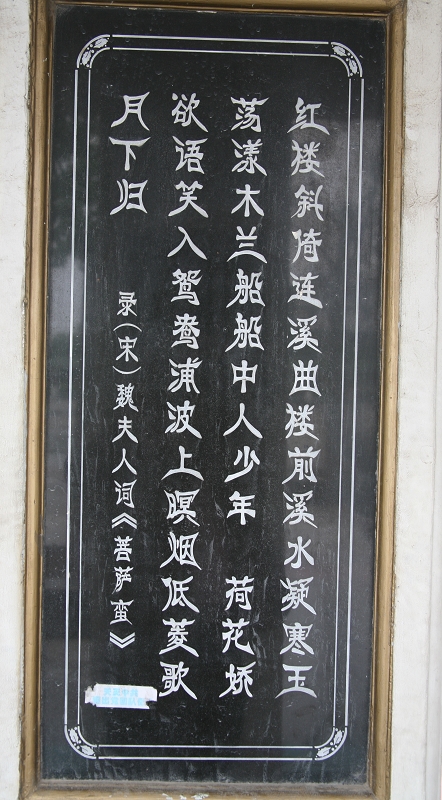 红楼斜倚连溪曲楼前溪水凝寒玉
荡漾木兰船船中人少年 荷花娇
欲语笑入鸳鸯浦波上暝烟低菱歌
月下归
录(宋)魏夫人词《菩萨蛮》